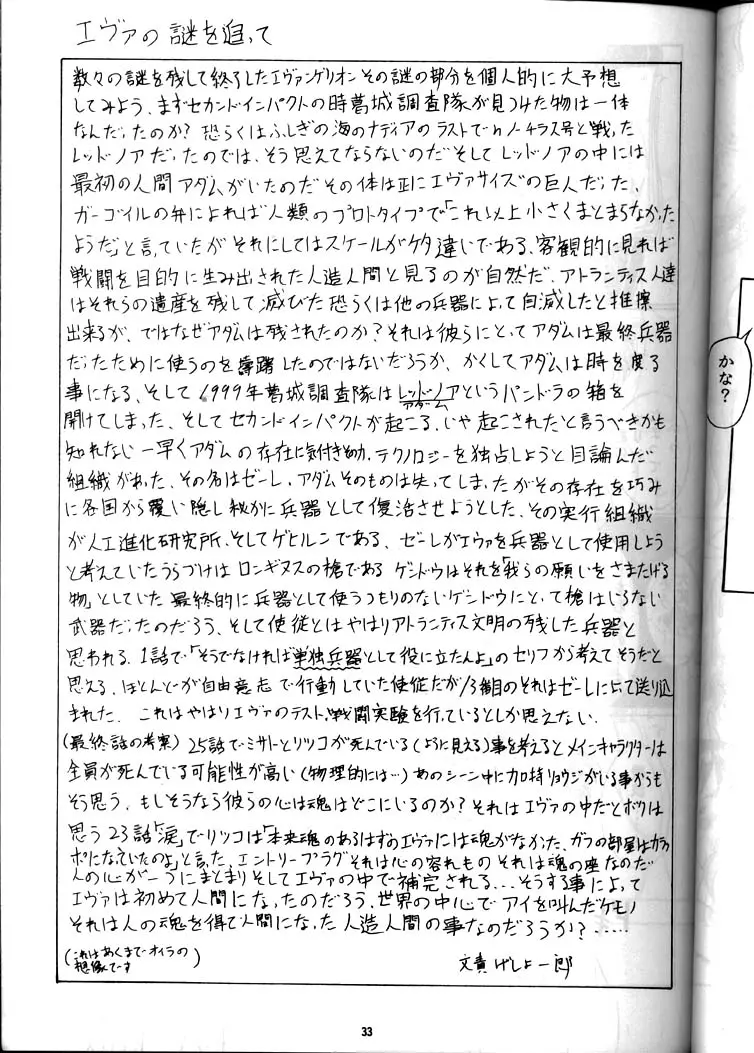 エヴァの謎を追って
数々の謎を残して終了したエヴァンゲリオンその謎の部分を個人的に大予想
してみよう、まずセカンドインパクトの時葛城調査隊が見つけた物は一体
なんだったのか？恐らくはふしぎの海のナディアのラストでnノーチラス号と戦った
レッドノアだったのでは、そう思えてならないのだそしてレッドノアの中には
最初の人間アダムがいたのだその体は正にエヴァサイズの巨人だった、
ガーゴイルの弁によれば人類のプロトタイプで「これ以上小さくまとまらなかった
ようだ」と言っていたがそれにしてはスケールがケタ違いである、客観的に見れば
戦闘を目的に生み出された人造人間と見るのが自然だ、アトランティス人達
はそれらの遺産を残して滅びた恐らくは他の兵器によって自滅したと推察
出来るが、ではなぜアダムは残されたのか？それは彼らにとってアダムは最終兵器
だったために使うのを躊躇したのではないだろうか、かくしてアダムは時を度る
事になる、そして1999年葛城調査隊はレッドノアというパンドラの箱を
アダム
開けてしまった、そしてセカンドインパクトが起こる、いや起こされたと言うべきかも
知れない一早くアダムの存在に気付き始め、テクノロジーを独占しようと目論んだ
組織があった、その名はゼーレ、アダムそのものは失ってしまったがその存在を巧みに
に各国から覆い隠し秘かに兵器として復活させようとした、その実行組織
が人工進化研究所、そしてゲヒルンである、ゼーレがエヴァを兵器として使用しよう
と考えていたうらづけはロンギヌスの槍であるゲンドウはそれを「我らの願いをさまたげる
物」としていた最終的に兵器として使うつもりのないゲンドウにとって槍はいらない
武器だったのだろう、そして使徒とはやはりアトランティス文明の残した兵器と
思われる、1話で「そうでなければ単独兵器として役に立たんよ」のセリフから考えてそうだと
思える、ほとんどが自由意志で行動していた使徒だが13番目のそれはゼーレによって送り込
まれた、これはやはりエヴァのテスト、戦闘実験を行っているとしか思えない、
(最終話の考察) 25話でミサトとリツコが死んでいる(ように見える)事を考えるとメインキャラクターは
全員が死んでいる可能性が高い(物理的には…)あのシーン中に加持リョウジがいる事からも
そう思う、もしそうなら彼らの心は魂はどこにいるのか？それはエヴァの中だとボクは
思う23話「涙」でリツコは「本来魂のあるはずのエヴァには魂がなかった、ガフの部屋はカラッ
ポになっていたのよ」と言った、エントリープラグそれは心の容れものそれは魂の座なのだ
人の心が一つにまとまりそしてエヴァの中で補完される…そうする事によって
エヴァは初めて人間になったのだろう、世界の中心でアイを叫んだケモノ
それは人の魂を得て人間になった人造人間の事なのだろうか？……
(これはあくまでオイラの
想像です)
文責 げしょ一郎
33
かな？